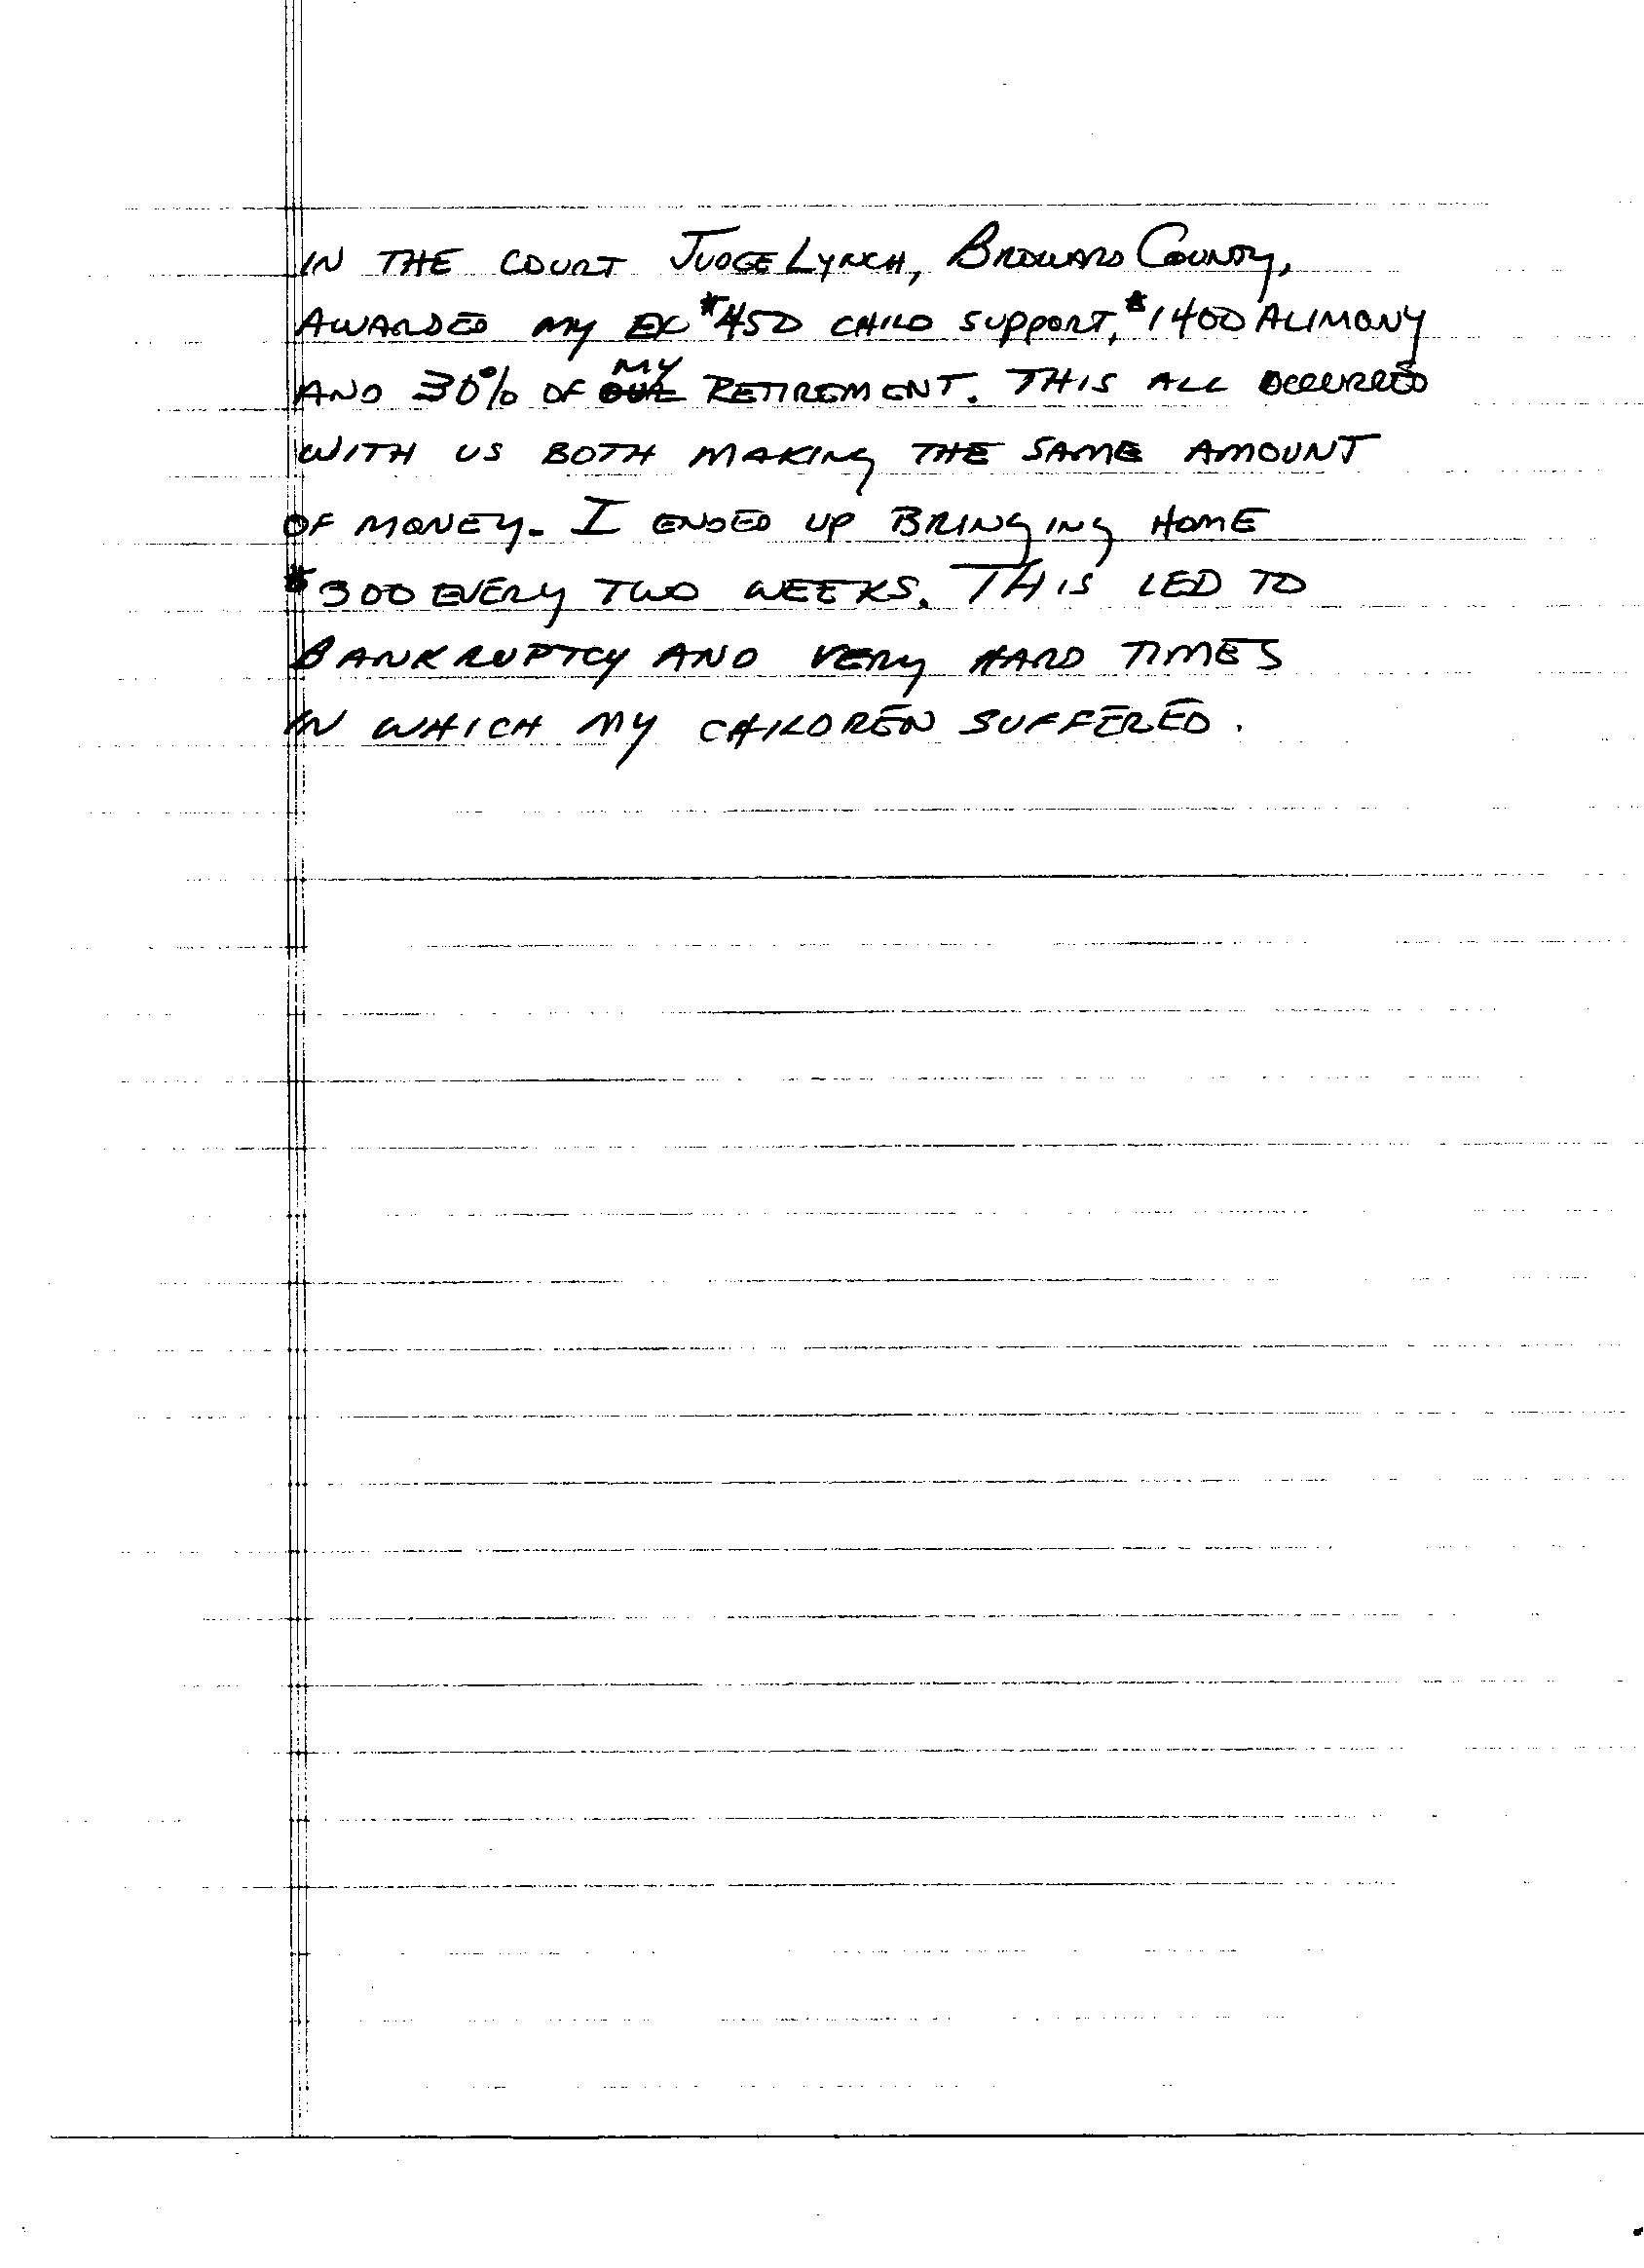 IN THE COURT JUDGE LYNCH, BROWARD COUNTY,
AWARDED MY EX $450 CHILD SUPPORT, $1400 ALIMONY
AND 30% OF OUR MY RETIREMENT. THIS ALL OCCURRED
WITH US BOTH MAKING THE SAME AMOUNT
OF MONEY. I ENDED UP BRINGING HOME
$300 EVERY TWO WEEKS. THIS LED TO
BANKRUPTCY AND VERY HARD TIMES
IN WHICH MY CHILDREN SUFFERED.